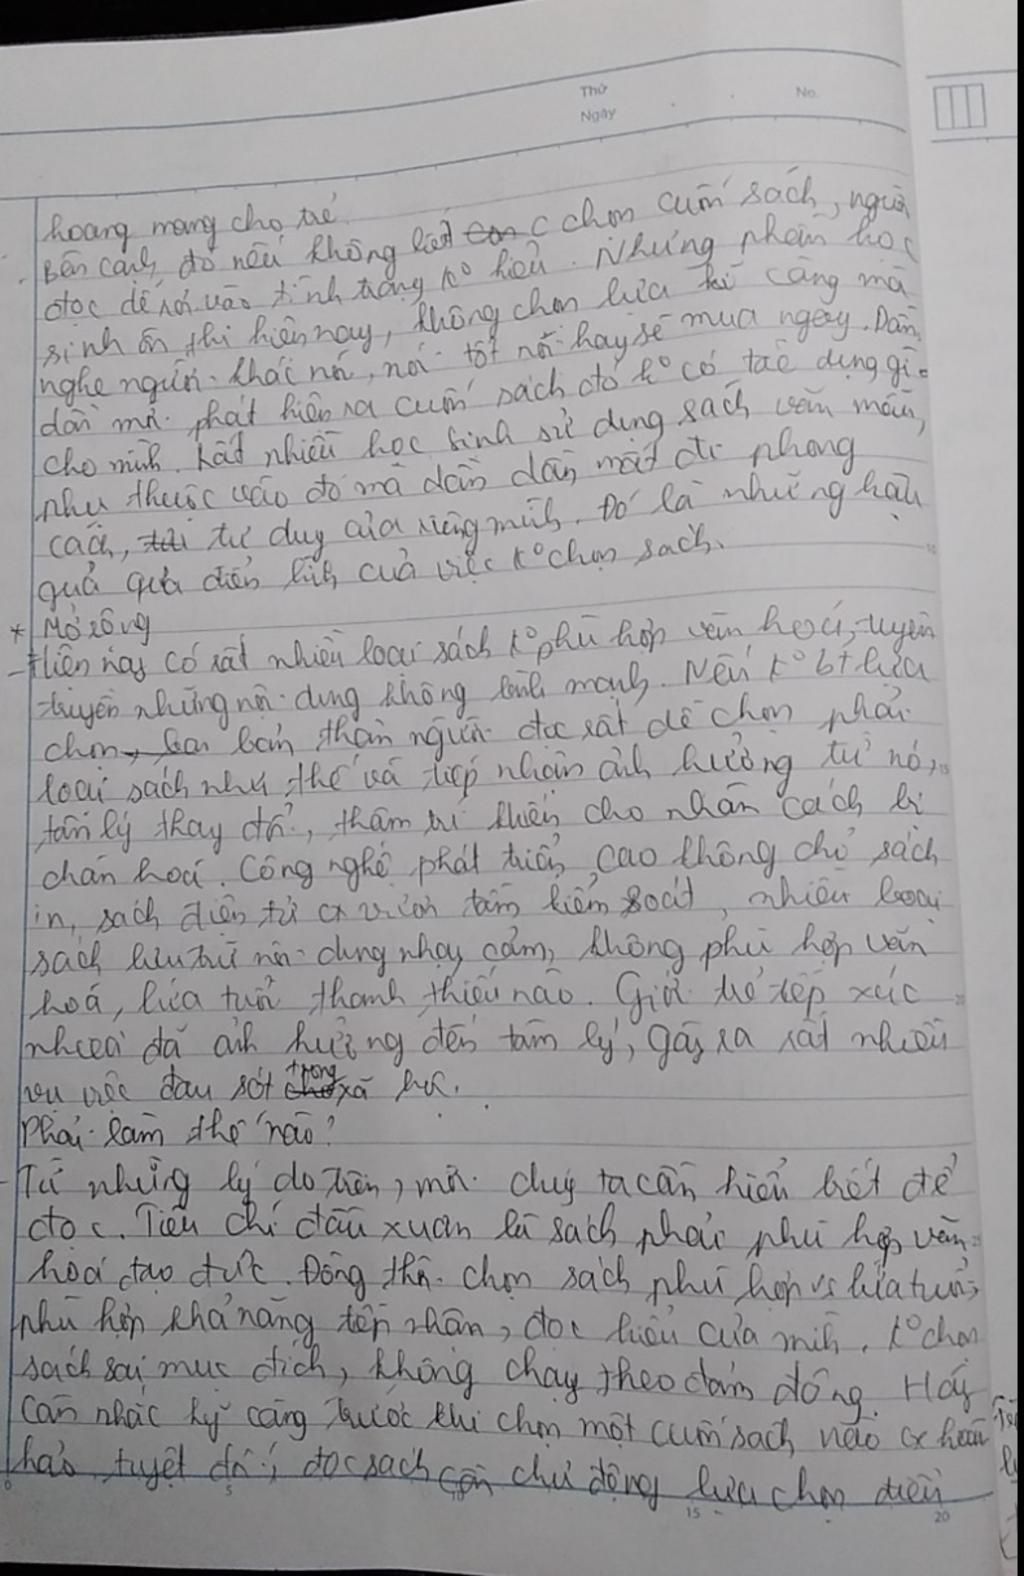 Thứ
Ngày
No.
hoang mang cho trẻ.
Bên cạnh đó nếu không biết c chọn cuốn sách, người
đọc dễ rơi vào tình trạng k° hiểu. Những phần học
sinh ôn thi hiện nay, không chọn lựa kĩ càng mà
nghe người khác nói, nói tốt nói hay sẽ mua ngay. Dần
dần mới phát hiện ra cuốn sách đó k° có tác dụng gì
cho mình. Rất nhiều học sinh sử dụng sách văn mẫu,
phụ thuộc vào đó mà dần dần mất đi phong
cách, tư duy của riêng mình. Đó là những hậu
quả của việc k° chọn sách.
* Mở rộng
- Hiện nay có rất nhiều loại sách k° phù hợp văn hoá, tuyên
truyền những nội dung không lành mạnh. Nếu k° bt lựa
chọn, bản thân người đọc rất dễ chọn phải
loại sách như thế và tiếp nhận ảnh hưởng từ nó,
tâm lý thay đổi, thậm trí khiến cho nhân cách bị
Công nghệ phát triển cao không chỉ sách
in, sách điện tử cx vượt tầm kiểm soát, nhiều loại
sách lưu trữ nội dung nhạy cảm, không phù hợp văn
hoá, lứa tuổi thanh thiếu niên. Giới trẻ tiếp xúc
nhiều đã ảnh hưởng đến tâm lý, gây ra rất nhiều
vụ việc đau xót trong xã hội.
Phải làm thế nào?
- Từ những lý do trên, mỗi chúng ta cần hiểu biết để
đọc. Tiêu chí đầu xuân là sách phải phù hợp văn
hoá đạo đức. Đồng thời chọn sách phù hợp vs lứa tuổi,
phù hợp khả năng tiếp nhận, đọc hiểu của mình. k° chọn
sách sai mục đích, không chạy theo đám đông. Hãy
cân nhắc kỹ càng trước khi chọn một cuốn sách nào cx hoàn
hảo tuyệt đối, đọc sách cần chủ động lựa chọn điều
5
10
15
20